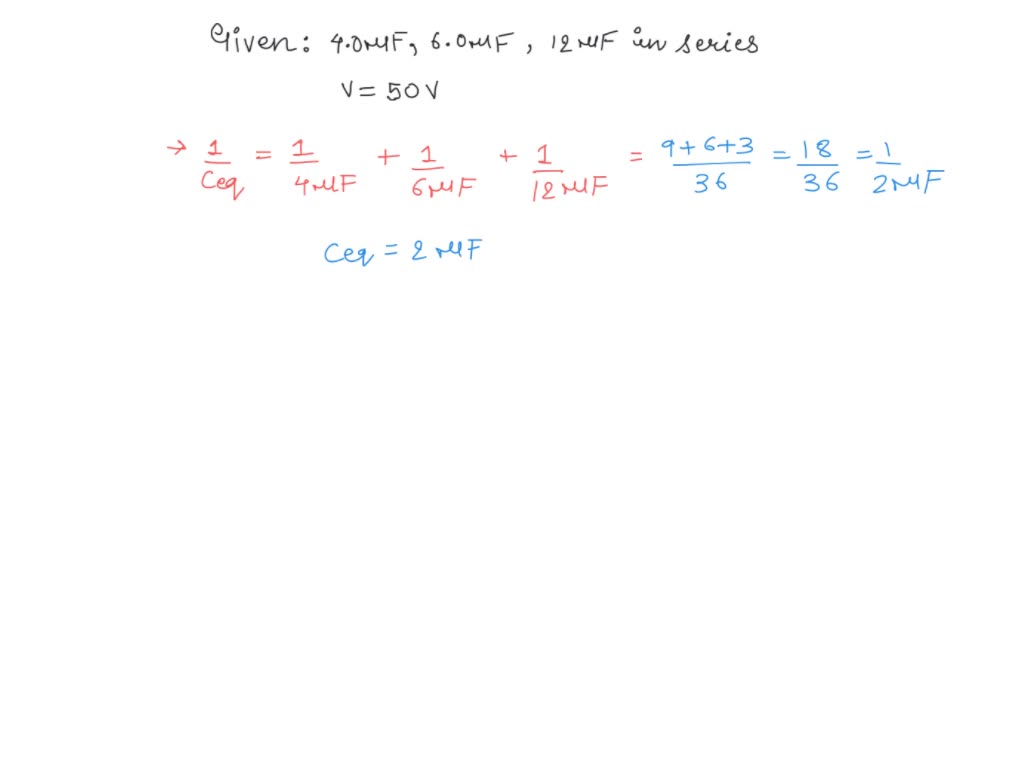 Given: 4.0μF, 6.0μF, 12μF in series
V = 50V
→ 1/Ceq = 1/4μF + 1/6μF + 1/12μF = 9+6+3/36 = 18/36 = 1/2μF
Ceq = 2μF